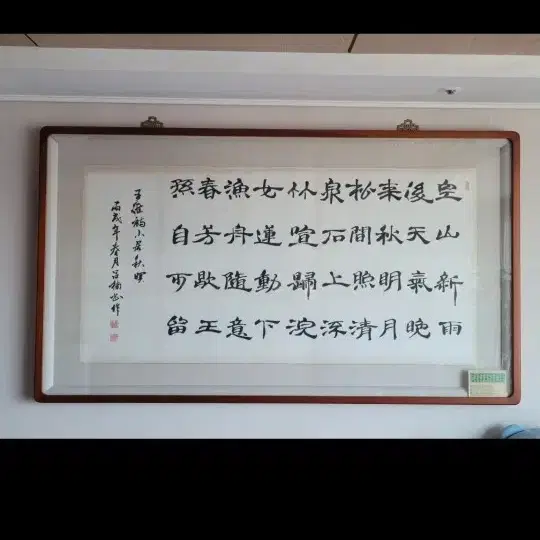 空山新雨
後天氣晚
來秋明月
松間照清
泉石上流
竹喧歸浣
女蓮動下
漁舟隨意
春芳歇王
孫自可留
王維詩山居秋暝
丙戌年春月呂作